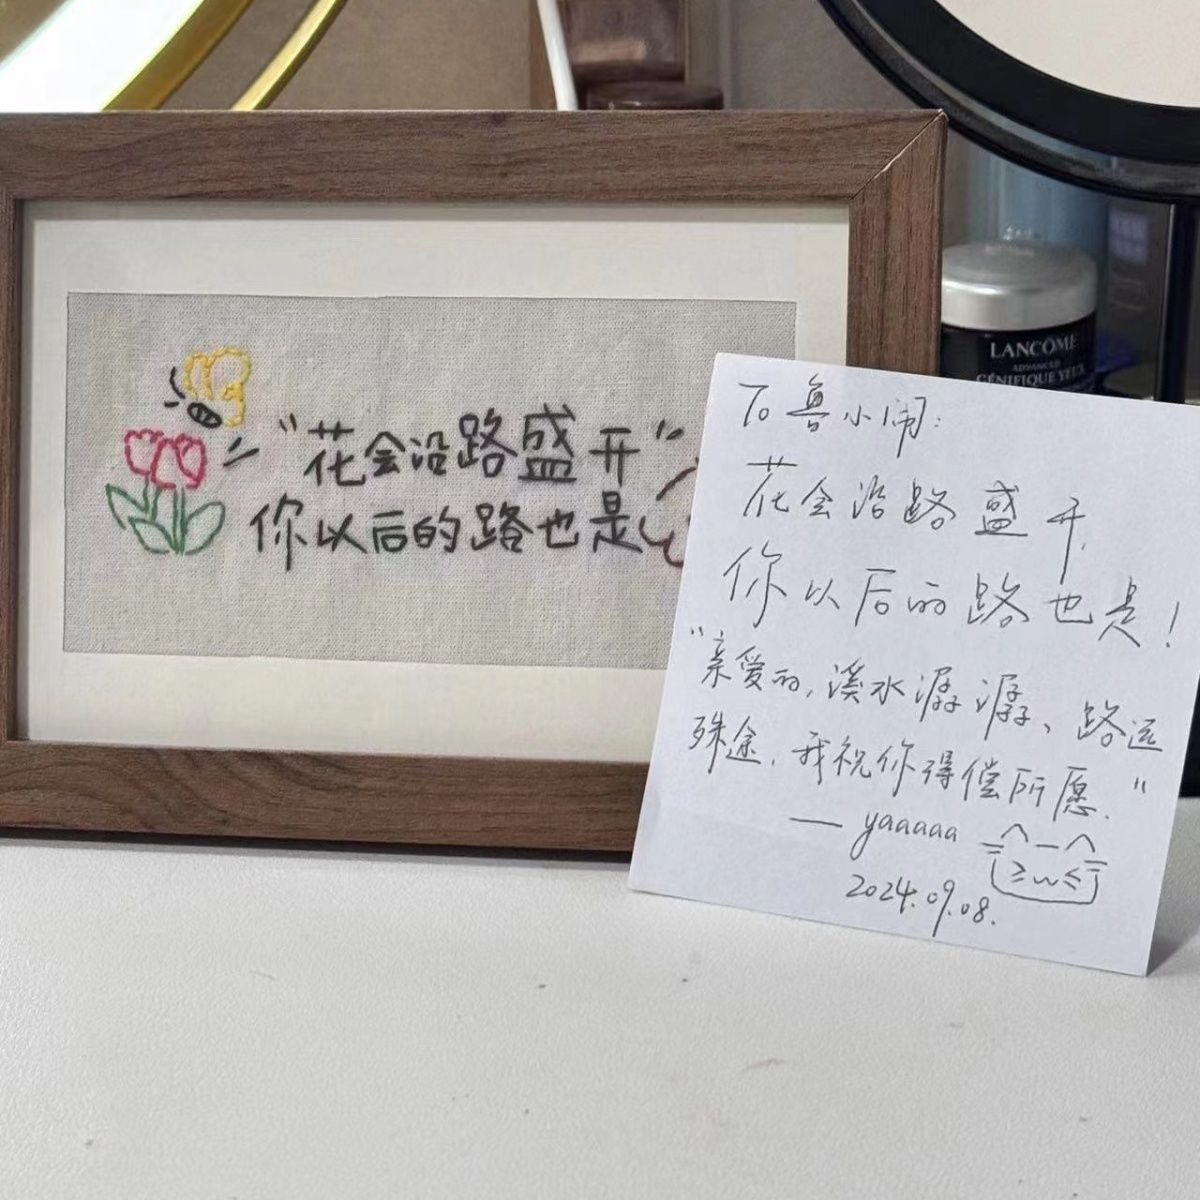 "花会沿路盛开"
你以后的路也是
LANCÔME
ADVANCED
GÉNIFIQUE YEUX
To 鲁小闹:
花会沿路盛开,
你以后的路也是!
"亲爱的,溪水潺潺、路远
殊途,我祝你得偿所愿."
— yaaaaa
2024.09.08.